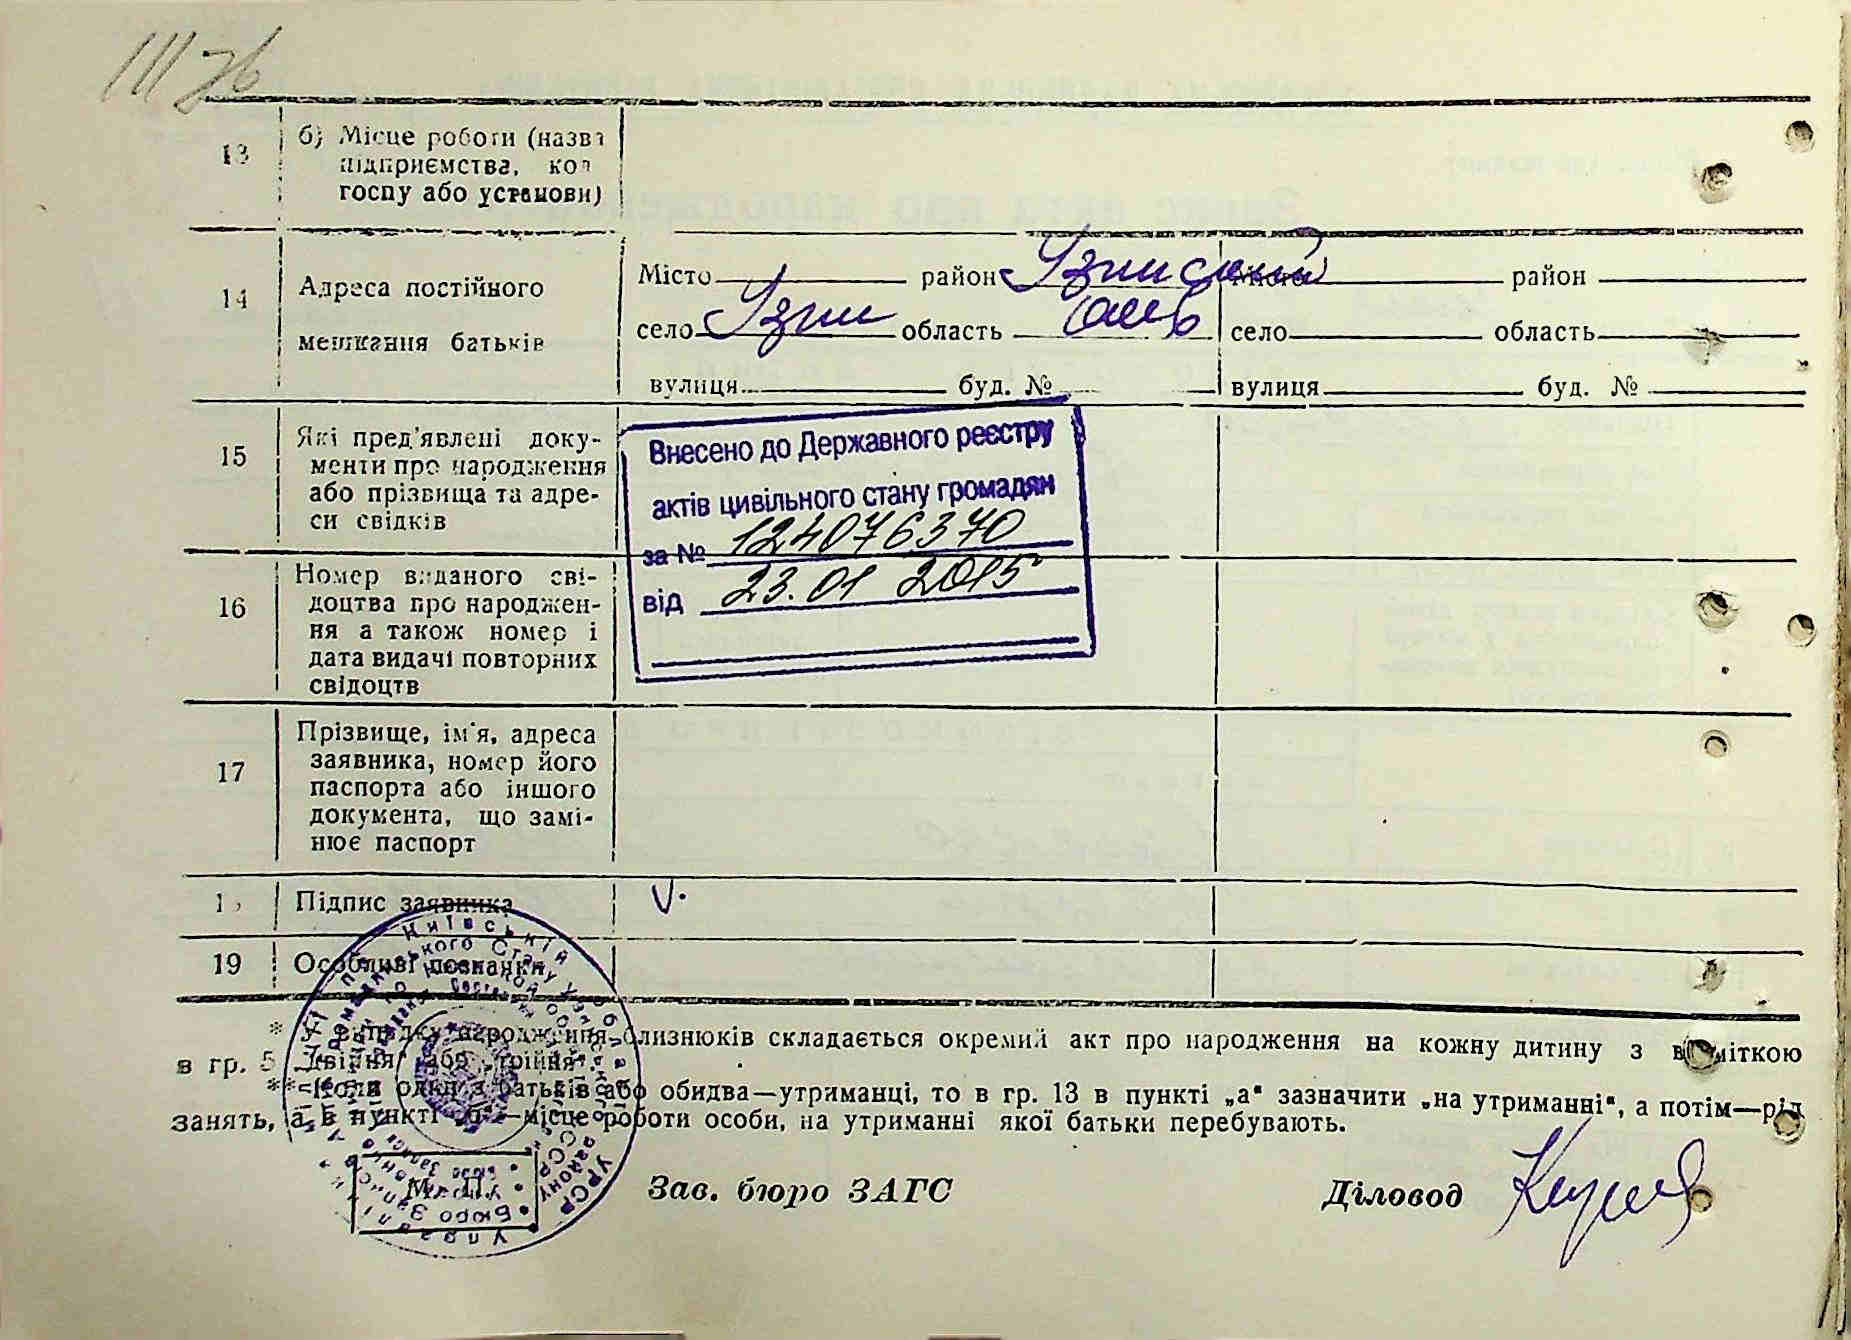 13 б) Місце роботи (назва
підприємства, кол
госпу або установи)
14 Адреса постійного
мешкання батьків
Місто район Узинський
село Узин область
вулиця буд. №
Місто район
село область
вулиця буд. №
15 Які пред'явлені доку-
менти про народження
або прізвища та адре-
си свідків
Внесено до Державного реєстру
актів цивільного стану громадян
за № 124076370
від 23.01 2015
16 Номер виданого сві-
доцтва про народжен-
ня а також номер і
дата видачі повторних
свідоцтв
17 Прізвище, ім'я, адреса
заявника, номер його
паспорта або іншого
документа, що замі-
нює паспорт
Підпис заявника
19 Особливі познанки
* У випадку народження близнюків складається окремий акт про народження на кожну дитину з відміткою
в гр. 5 „двійня" або „трійня".
** Коли один з батьків або обидва—утриманці, то в гр. 13 в пункті „а" зазначити „на утриманні", а потім—рід
занять, а в пункті „б"—місце роботи особи, на утриманні якої батьки перебувають.
М. П.
Зав. бюро ЗАГС
Діловод